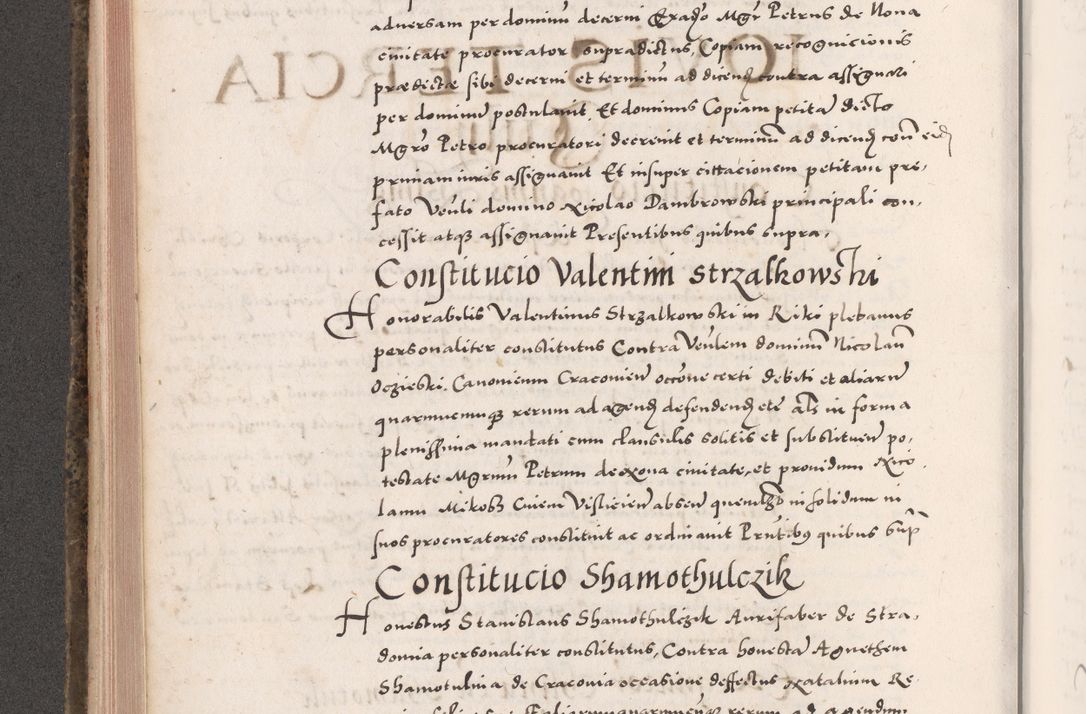 adversam per dominum decerni Ex adverso Mgr Petrus de Nona
civitate procurator supradictus, Copiam recognicionis
prædictæ sibi decerni et terminum ad dicend contra assignari
per dominum postulavit. Et dominus Copiam petitam dicto
Mgro Petro procuratori decrevit et terminum ad dicend con eid
primam iuris assignavit Et insuper cittacionem petitam pre,
fato Venli domino Nicolao Dambrowski principali con,
cessit atq assignavit Presentibus quibus supra,
Constitucio Valentini Strzalkowski
Honorabilis Valentinus Strzalkowski in Kiki plebanus
personaliter constitutus Contra Venlem dominum Nicolaum
Oczieski. Canonicum Cracovien occone certi debiti et aliarum
quarumcumq rerum ad agend defendend etc als in forma
plenissima mandati cum clausulis solitis et substituen po,
testate Mgrum Petrum de Nova civitate, et providum Nico
laum Mikosz Civem Visliciem absen quemlib in solidum in
suos procuratores constituit ac ordinavit Prntibq quibus sup
Constitucio Shamothulczik
Honestus Stanislaus Shamothulczik Aurifaber de Stra,
domia personaliter constitutus, Contra honesta Agnethem
Shamotulina de Cracovia occasione deffectus Natalium Re,
aliarum quarumcunq rerum ad agendum
JOVIS TERCIA